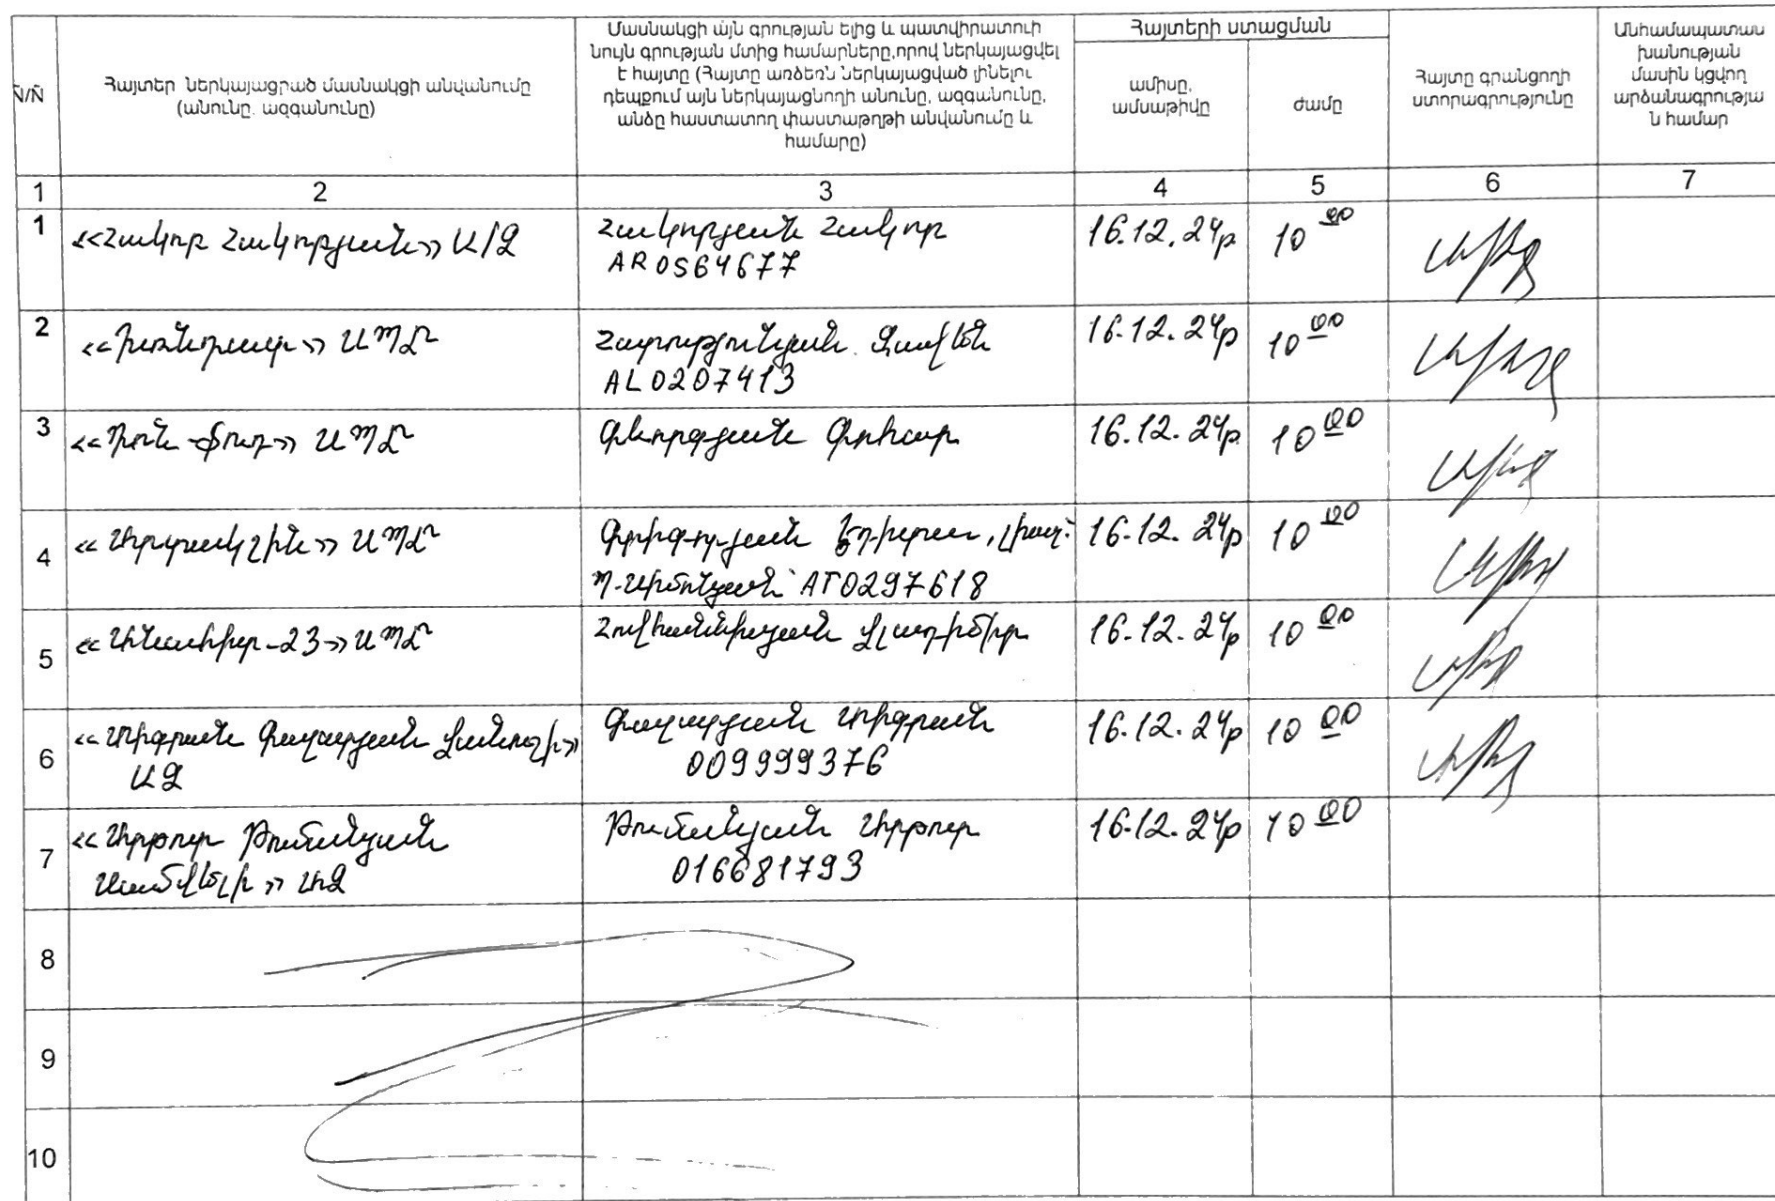 Ñ/Ñ
Հայտեր ներկայացրած մասնակցի անվանումը
(անունը. ազգանունը)
Մասնակցի այն գրության ելից և պատվիրատուի
նույն գրության մտից համարները,որով ներկայացվել
է հայտը (Հայտը առձեռն ներկայացված լինելու
դեպքում այն ներկայացնողի անունը, ազգանունը,
անձը հաստատող փաստաթղթի անվանումը և
համարը)
Հայտերի ստացման
ամիսը,
ամսաթիվը
ժամը
Հայտը գրանցողի
ստորագրությունը
Անհամապատաս
խանության
մասին կցվող
արձանագրությա
ն համար
1 2 3 4 5 6 7
1
<<Հակոբ Հակոբյան>> Ա/Ձ
Հակոբյան Հակոբ
AR0564677
16.12.24թ
10 00
2
ՍՊԸ
Հարությունյան Զավեն
AL0207413
16.12.24թ
10 00
3
ՍՊԸ
Գևորգյան
16.12.24թ
10 00
4
<<Շիրակշին>> ՍՊԸ
Գրիգորյան
AT0297618
16.12.24թ
10 00
5
ՍՊԸ
Հովհաննիսյան Վլադիմիր
16.12.24թ
10 00
6
<<Տիգրան Ղազարյան
ԱՁ
Ղազարյան Տիգրան
009999376
16.12.24թ
10 00
7
<<Արթուր Թումանյան
Սամվելի>> ԱՁ
Թումանյան Արթուր
016681793
16.12.24թ
10 00
8
9
10